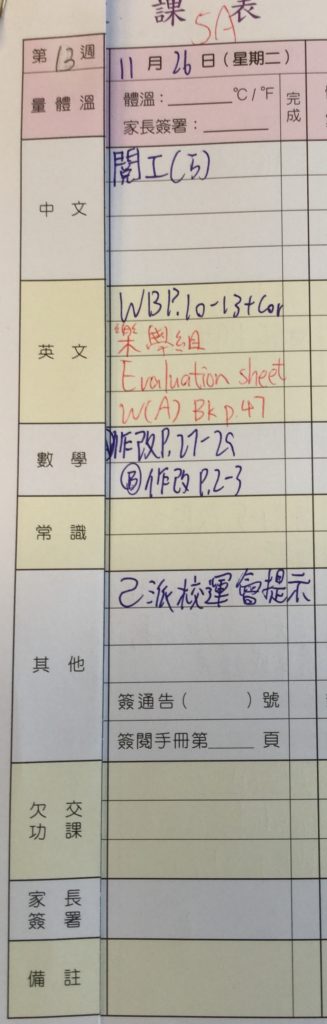 課 5A 表
第 13 週
11 月 26 日 (星期二)
量體溫
體溫：______ ℃/℉
家長簽署：______
完成
中文
閱工(5)
英文
WB P.10-13+Cor
樂學組
Evaluation sheet
W(A) Bk p.47
數學
作改P.27-29
Ⓑ作改P.2-3
常識
其他
已派校運會提示
簽通告 ( ) 號
簽閱手冊第____ 頁
欠交功課
家長簽署
備註